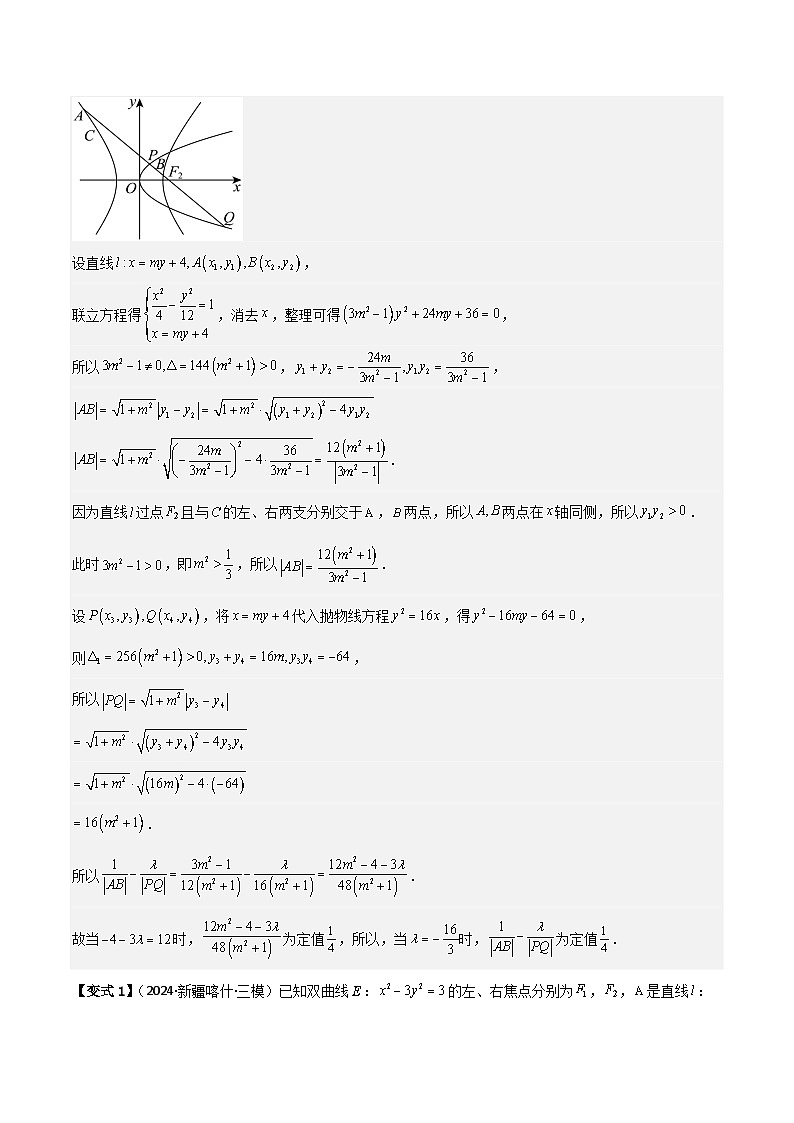 y
A
C
P
B
F₂
O
x
Q
设直线 l : x = my + 4, A(x₁, y₁), B(x₂, y₂),
联立方程得 { x²/4 − y²/12 = 1, x = my + 4 , 消去 x , 整理可得 (3m² − 1)y² + 24my + 36 = 0,
所以 3m² − 1 ≠ 0, Δ = 144(m² + 1) > 0, y₁ + y₂ = −24m/(3m² − 1), y₁y₂ = 36/(3m² − 1),
|AB| = √(1 + m²)|y₁ − y₂| = √(1 + m²) · √((y₁ + y₂)² − 4y₁y₂)
|AB| = √(1 + m²) · √((−24m/(3m² − 1))² − 4 · 36/(3m² − 1)) = 12(m² + 1)/|3m² − 1|.
因为直线 l 过点 F₂ 且与 C 的左、右两支分别交于 A , B 两点，所以 A, B 两点在 x 轴同侧，所以 y₁y₂ > 0 .
此时 3m² − 1 > 0 , 即 m² > 1/3 , 所以 |AB| = 12(m² + 1)/(3m² − 1).
设 P(x₃, y₃), Q(x₄, y₄) , 将 x = my + 4 代入抛物线方程 y² = 16x , 得 y² − 16my − 64 = 0 ,
则 Δ₁ = 256(m² + 1) > 0, y₃ + y₄ = 16m, y₃y₄ = −64 ,
所以 |PQ| = √(1 + m²)|y₃ − y₄|
= √(1 + m²) · √((y₃ + y₄)² − 4y₃y₄)
= √(1 + m²) · √((16m)² − 4 · (−64))
= 16(m² + 1) .
所以 1/|AB| − λ/|PQ| = (3m² − 1)/(12(m² + 1)) − λ/(16(m² + 1)) = (12m² − 4 − 3λ)/(48(m² + 1)) .
故当 −4 − 3λ = 12 时, (12m² − 4 − 3λ)/(48(m² + 1)) 为定值 1/4 , 所以，当 λ = −16/3 时, 1/|AB| − λ/|PQ| 为定值 1/4 .
【变式 1】（2024·新疆喀什·三模）已知双曲线 E : x² − 3y² = 3 的左、右焦点分别为 F₁ , F₂ , A 是直线 l :